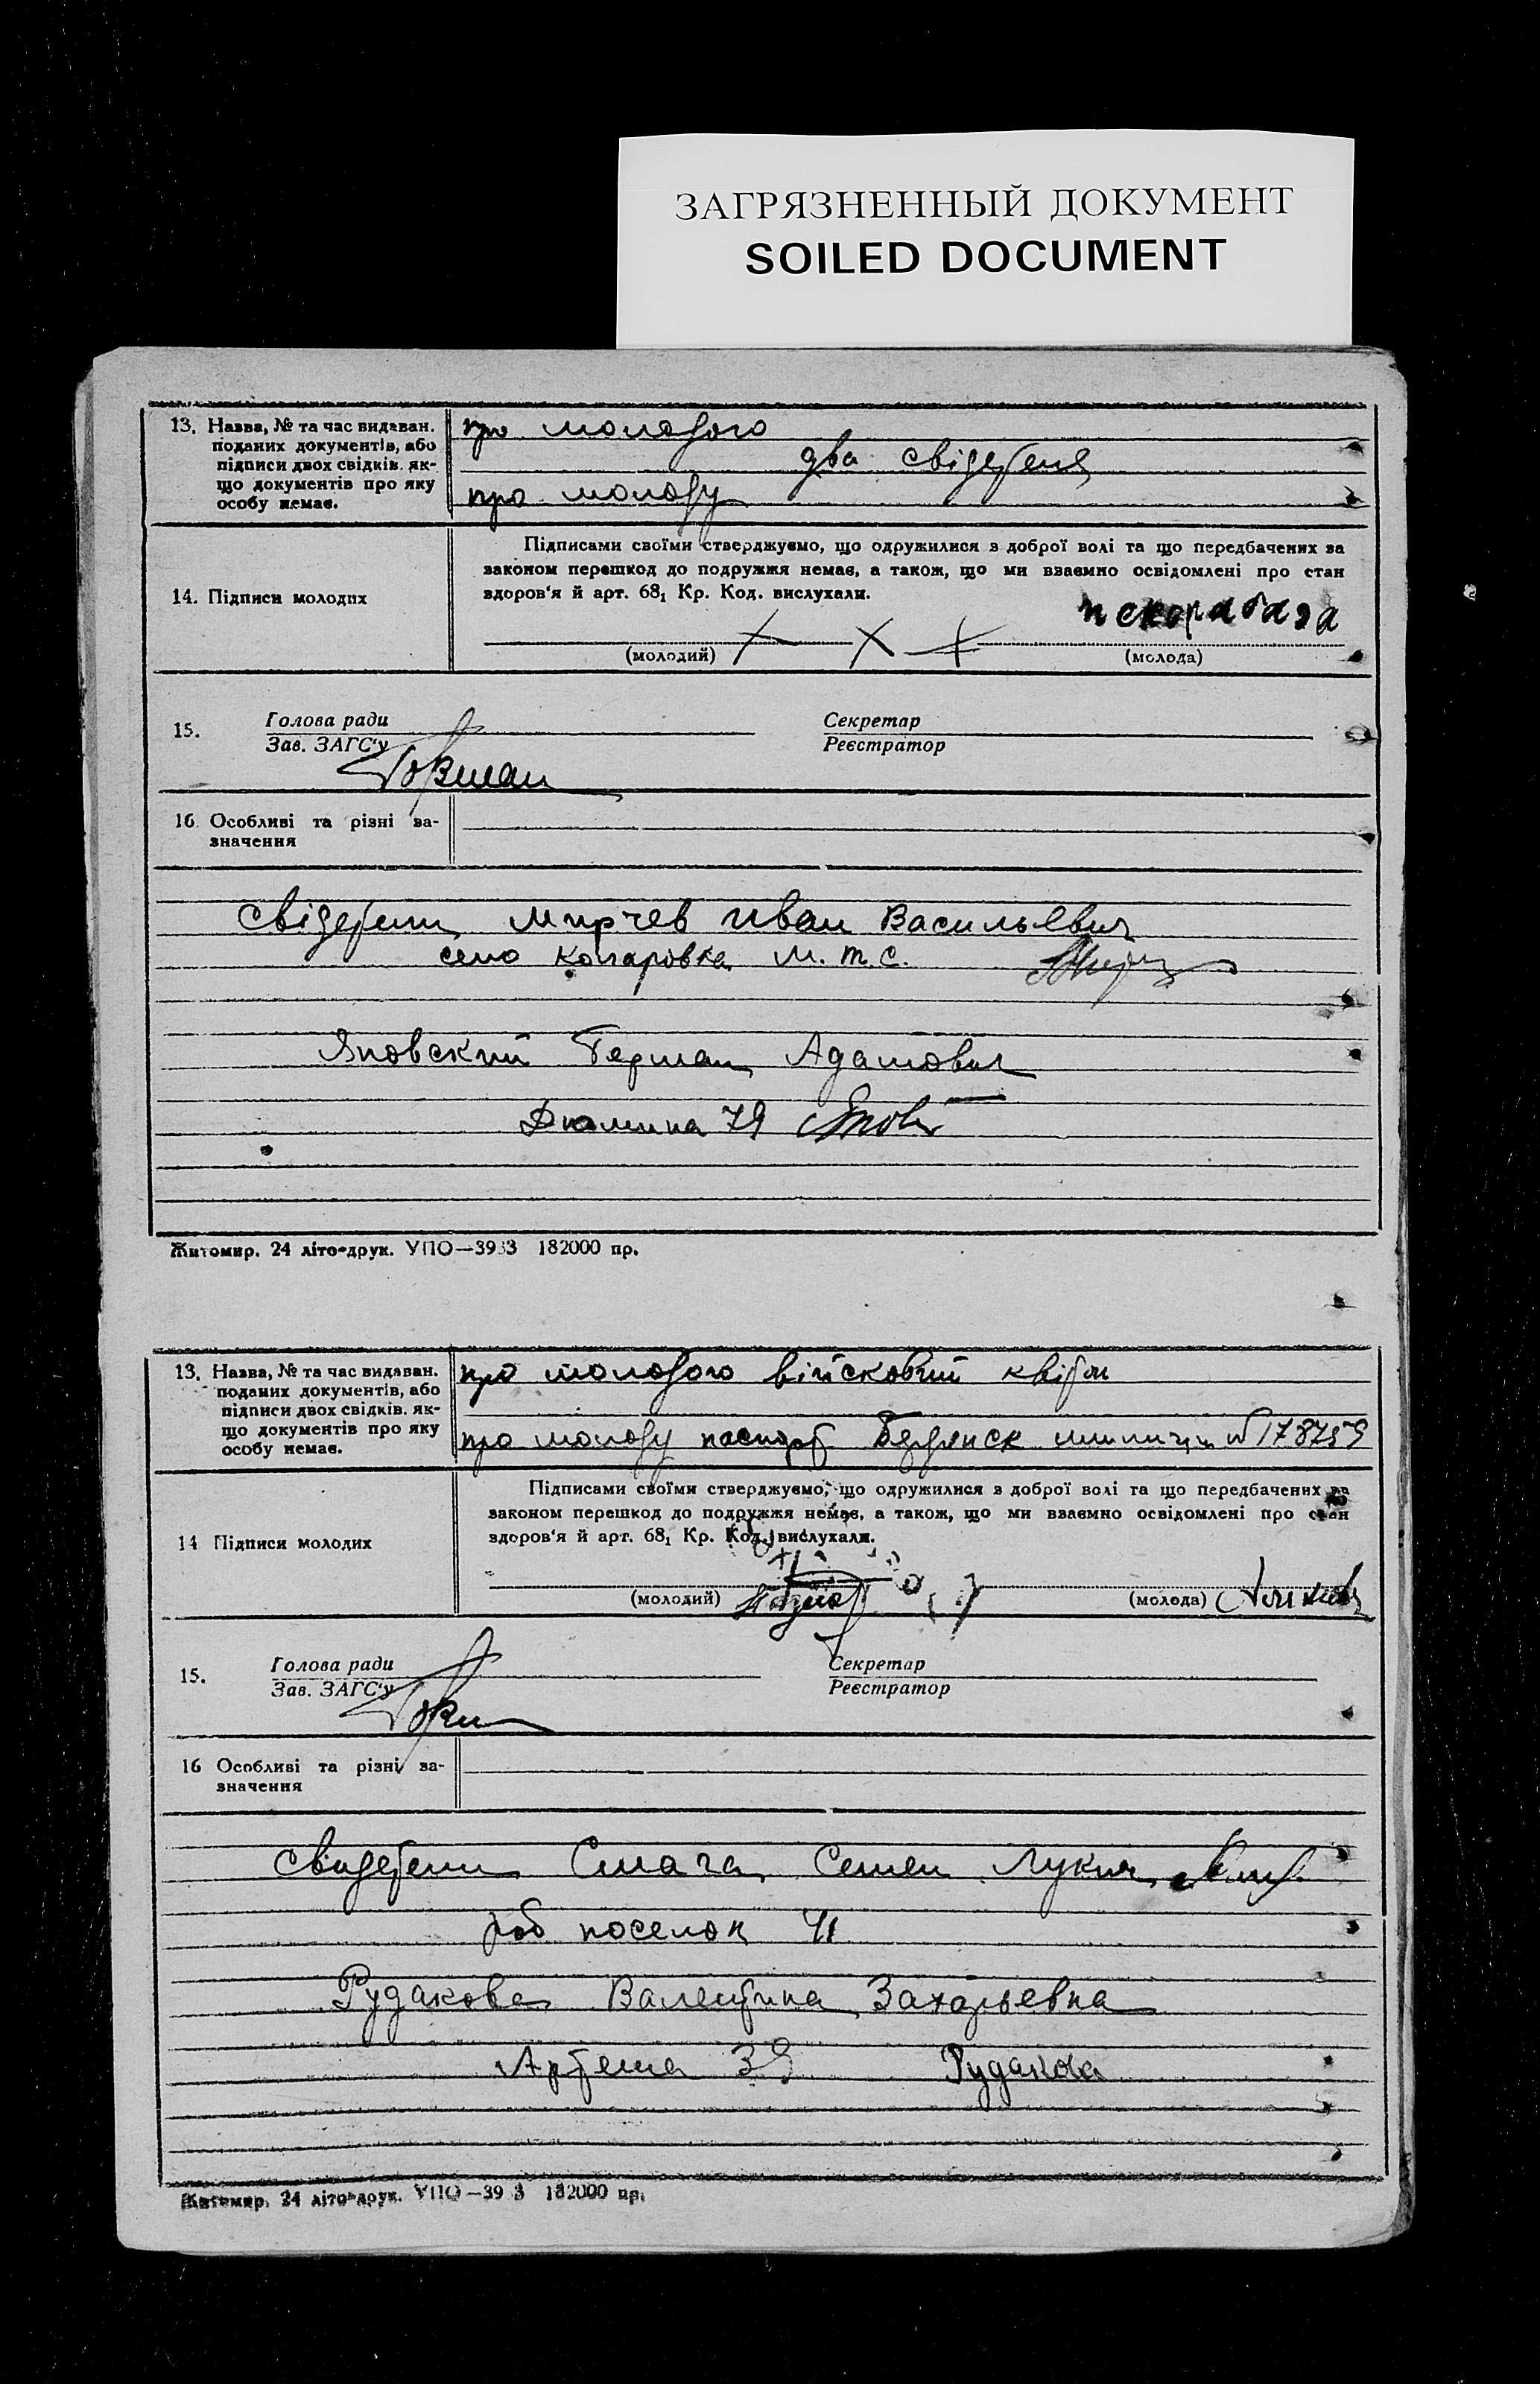 ЗАГРЯЗНЕННЫЙ ДОКУМЕНТ
SOILED DOCUMENT
13. Назва, № та час видаван. поданих документів, або підписи двох свідків, якщо документів про яку особу немає.
про молодого
два свідетеля
про молоду
14. Підписи молодих
Підписами своїми стверджуємо, що одружилися з доброї волі та що передбачених за
законом перешкод до подружжя немає, а також, що ми взаємно освідомлені про стан
здоров'я й арт. 68₁ Кр. Код. вислухали.
(молодий) (молода)
15. Голова ради Секретар
Зав. ЗАГС'у Реєстратор
16. Особливі та різні зазначення
свідетели Мирчев Иван Васильевич
село Коларовка М.Т.С.
Яновский Герман Адамович
Дюмина 79
Житомир. 24 літо-друк. УПО—3933 182000 пр.
13. Назва, № та час видаван. поданих документів, або підписи двох свідків, якщо документів про яку особу немає.
про молодого війсковий квіток
про молоду паспорт Бердянск милиции № 178759
14 Підписи молодих
Підписами своїми стверджуємо, що одружилися з доброї волі та що передбачених за
законом перешкод до подружжя немає, а також, що ми взаємно освідомлені про стан
здоров'я й арт. 68₁ Кр. Код. вислухали.
(молодий) (молода)
15. Голова ради Секретар
Зав. ЗАГС'у Реєстратор
16 Особливі та різні зазначення
свидетели Семен Лукич
раб поселок
Рудакова Валентина Захарьевна
Артема 39 Рудакова
Житомир. 24 літо-друк. УПО—39 3 182000 пр.